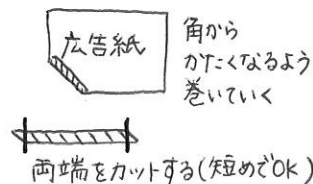 広告紙
角から
かたくなるよう
巻いていく
両端をカットする(短めでOK)